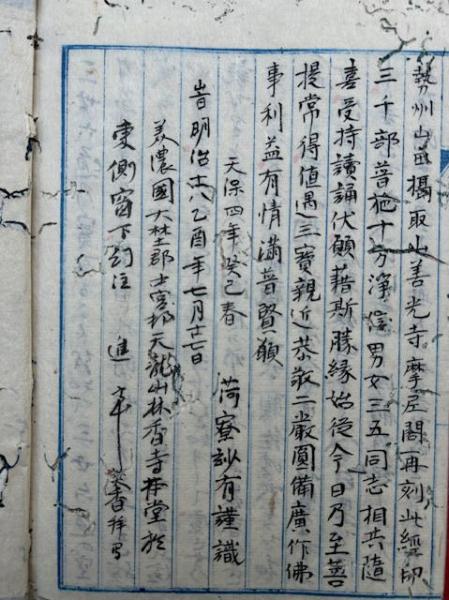 勢州山田攝取山善光寺
再刻此經印
三千部普施十方淨信男女三五同志相共隨
喜受持讀誦伏願藉斯勝緣始從今日乃至菩
提常得値遇三寶親近恭敬二嚴圓備廣作佛
事利益有情滿普賢願
天保四年癸巳春
有謹識
旹明治十八乙酉年七月十七日
美濃國大
郡
村天龍山林香寺
堂於
東側窗下
進
拜寫